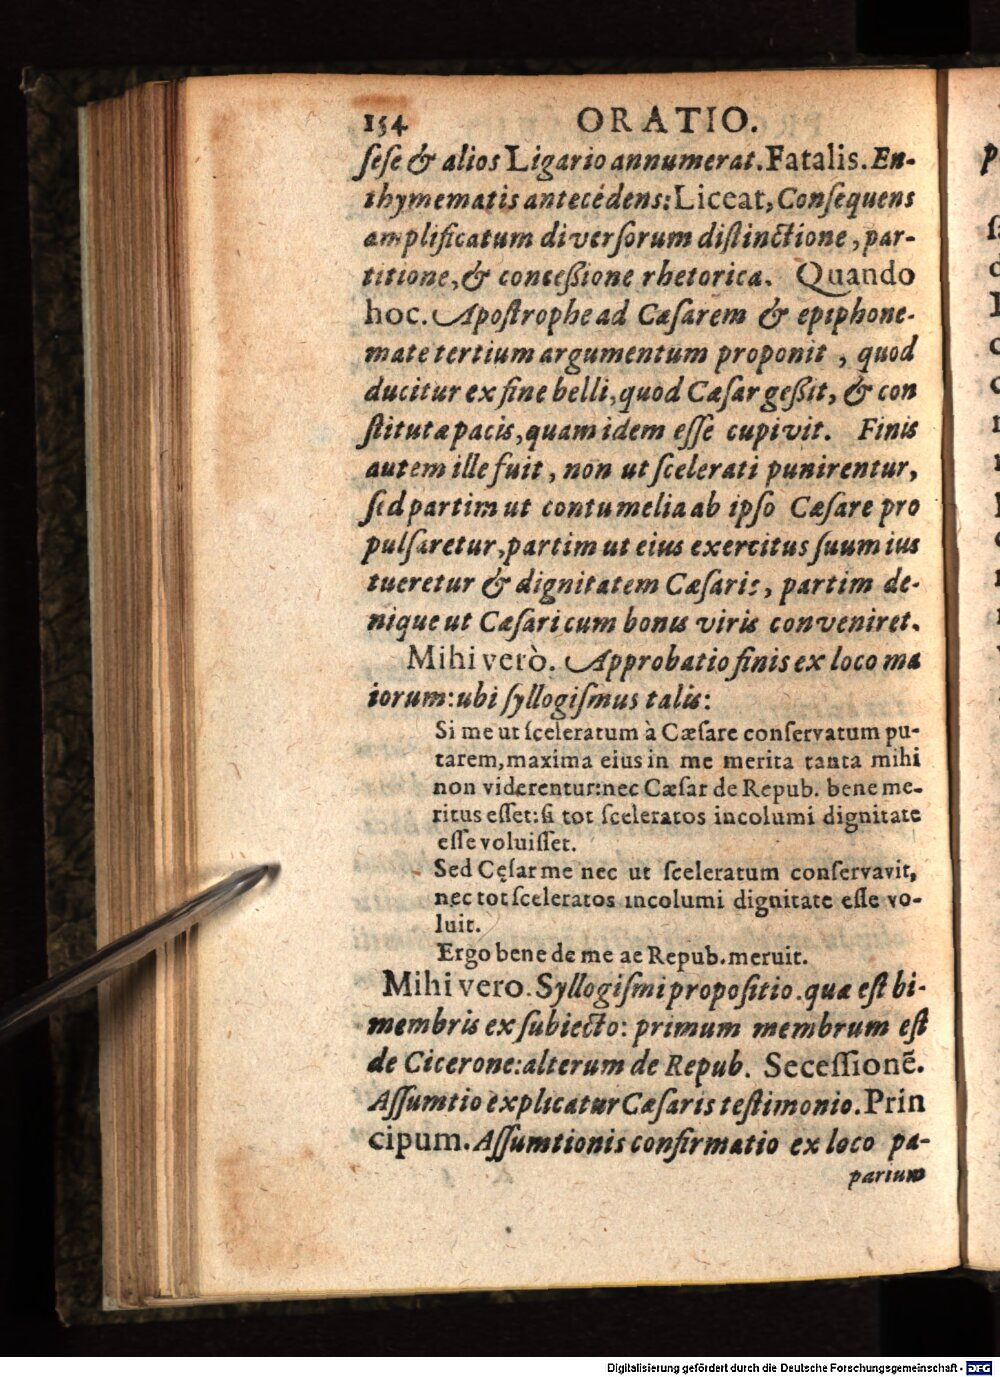 154 ORATIO.
ſeſe & alios Ligario annumerat. Fatalis. En-
thymematis antecédens: Liceat, Conſequens
amplificatum diverſorum diſtinctione, par-
titione, & conceßione rhetorica. Quando
hoc. Apoſtrophe ad Cæſarem & epiphone-
mate tertium argumentum proponit, quod
ducitur ex fine belli, quod Cæſar geßit, & con
ſtitutæ pacis, quam idem eſſe cupivit. Finis
autem ille fuit, non ut ſcelerati punirentur,
ſed partim ut contumelia ab ipſo Cæſare pro
pulſaretur, partim ut eius exercitus ſuum ius
tueretur & dignitatem Cæſaris, partim de-
nique ut Cæſari cum bonis viris conveniret.
Mihi verò. Approbatio finis ex loco ma
iorum: ubi ſyllogiſmus talis:
Si me ut ſceleratum à Cæſare conſervatum pu-
tarem, maxima eius in me merita tanta mihi
non viderentur: nec Cæſar de Repub. bene me-
ritus eſſet: ſi tot ſceleratos incolumi dignitate
eſſe voluiſſet.
Sed Cęſar me nec ut ſceleratum conſervavit,
nec tot ſceleratos incolumi dignitate eſſe vo-
luit.
Ergo bene de me ac Repub. meruit.
Mihi vero. Syllogiſmi propoſitio. quæ eſt bi-
membris ex ſubiecto: primum membrum eſt
de Cicerone: alterum de Repub. Seceſſionẽ.
Aſſumtio explicatur Cæſaris teſtimonio. Prin
cipum. Aſſumtionis confirmatio ex loco pa-
parium
Digitalisierung gefördert durch die Deutsche Forschungsgemeinschaft - DFG